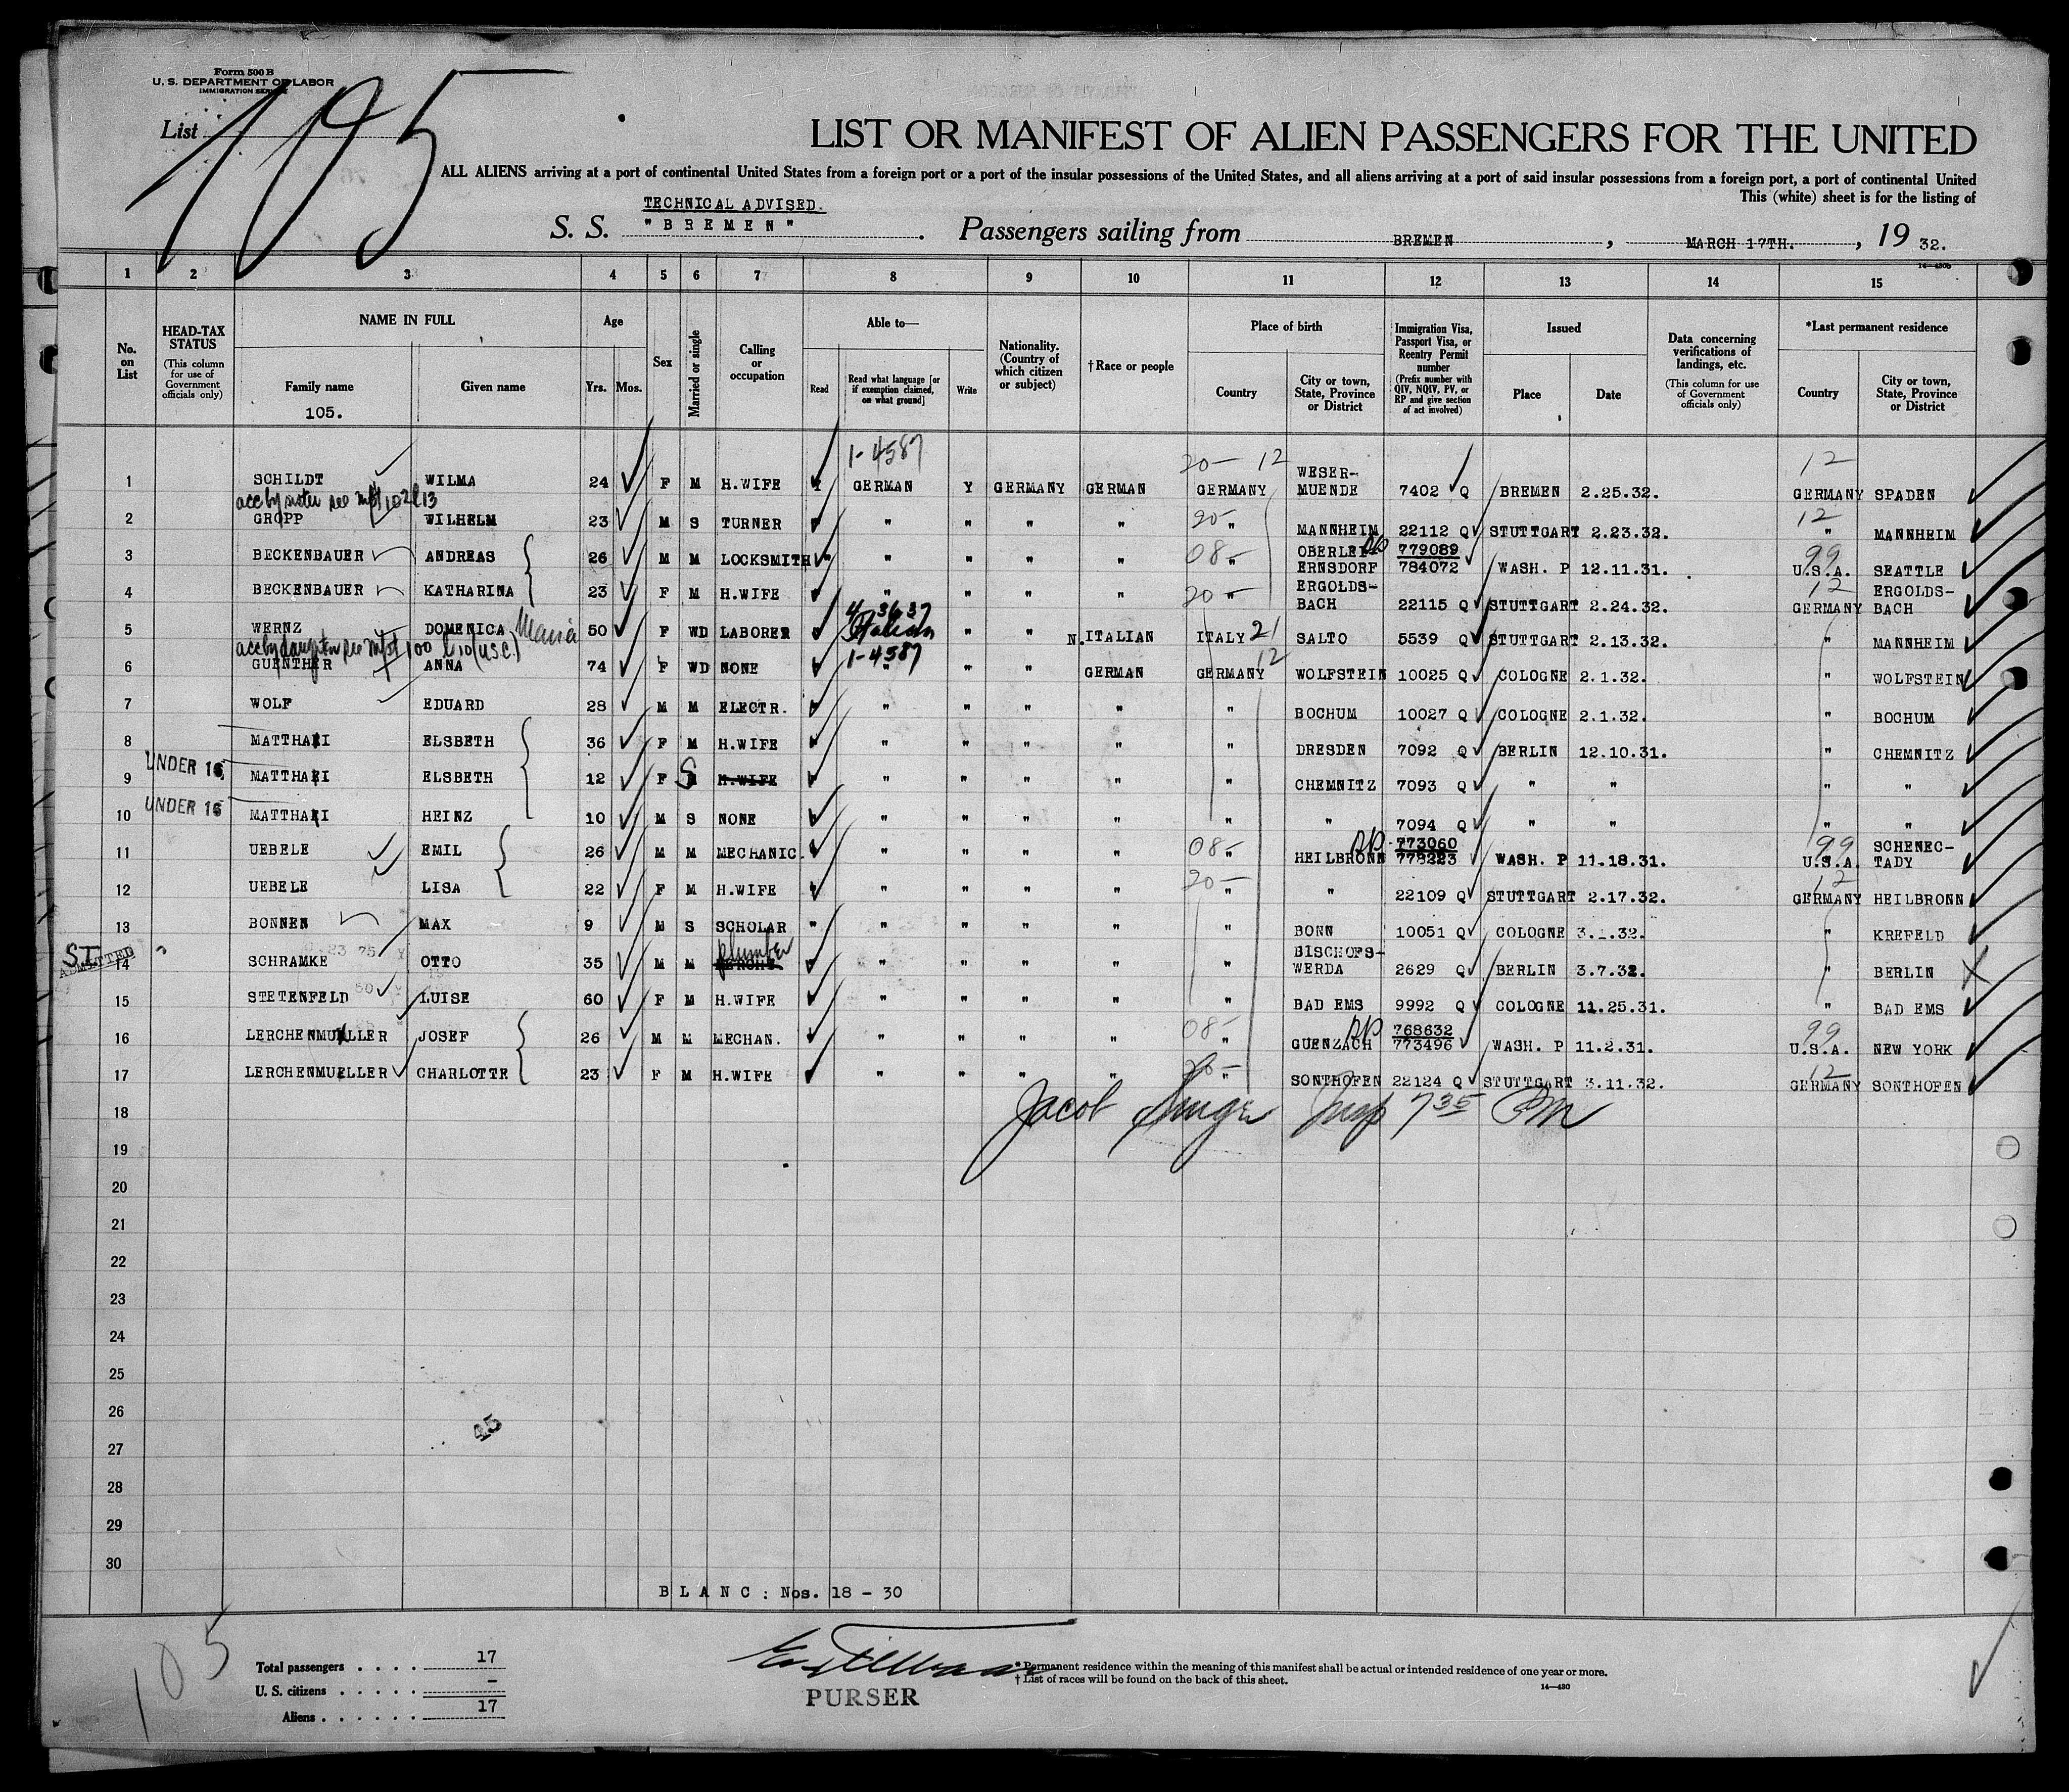 Form 500 B
U. S. DEPARTMENT OF LABOR
IMMIGRATION SERVICE
List 105
LIST OR MANIFEST OF ALIEN PASSENGERS FOR THE UNITED
ALL ALIENS arriving at a port of continental United States from a foreign port or a port of the insular possessions of the United States, and all aliens arriving at a port of said insular possessions from a foreign port, a port of continental United
This (white) sheet is for the listing of
TECHNICAL ADVISED.
S. S. "BREMEN". Passengers sailing from BREMEN, MARCH 17TH., 19 32.
14—430b
1 2 3 4 5 6 7 8 9 10 11 12 13 14 15
No. on List
HEAD-TAX STATUS (This column for use of Government officials only)
NAME IN FULL
Family name
Given name
105.
Age
Yrs. Mos.
Sex
Married or single
Calling or occupation
Able to—
Read
Read what language [or if exemption claimed, on what ground]
Write
Nationality. (Country of which citizen or subject)
† Race or people
Place of birth
Country
City or town, State, Province or District
Immigration Visa, Passport Visa, or Reentry Permit number (Prefix number with QIV, NQIV, PV, or RP and give section of act involved)
Issued
Place
Date
Data concerning verifications of landings, etc. (This column for use of Government officials only)
*Last permanent residence
Country
City or town, State, Province or District
1-4587 20- 12 12
1 SCHILDT WILMA 24 F M H.WIFE GERMAN Y GERMANY GERMAN GERMANY WESER-MUENDE 7402 Q BREMEN 2.25.32. GERMANY SPADEN
acc by sister see mfst 102 l 13
2 GROPP WILHELM 23 M S TURNER " " " " 20- " MANNHEIM 22112 Q STUTTGART 2.23.32. 12 " MANNHEIM
3 BECKENBAUER ANDREAS 26 M M LOCKSMITH " " " " " 08- " OBERLEI-ERNSDORF 779089 784072 WASH. P 12.11.31. 99 U.S.A. SEATTLE
4 BECKENBAUER KATHARINA 23 F M H.WIFE " " " " 20- " ERGOLDS-BACH 22115 Q STUTTGART 2.24.32. 12 GERMANY ERGOLDS-BACH
4 3637
5 WERNZ DOMENICA Maria 50 F WD LABORER Italian " " N. ITALIAN ITALY 21 SALTO 5539 Q STUTTGART 2.13.32. " MANNHEIM
acc by daughter see mfst 100 l 10 (U.S.C.) 1-4587
6 GUENTHER ANNA 74 F WD NONE " " " GERMAN GERMANY 12 WOLFSTEIN 10025 Q COLOGNE 2.1.32. " WOLFSTEIN
7 WOLF EDUARD 28 M M ELECTR. " " " " " BOCHUM 10027 Q COLOGNE 2.1.32. " BOCHUM
8 MATTHAEI ELSBETH 36 F M H.WIFE " " " " " DRESDEN 7092 Q BERLIN 12.10.31. " CHEMNITZ
UNDER 16
9 MATTHAEI ELSBETH 12 F S H.WIFE " " " " " CHEMNITZ 7093 Q " " " "
UNDER 16
10 MATTHAEI HEINZ 10 M S NONE " " " " " " 7094 Q " " " "
11 UEBELE EMIL 26 M M MECHANIC. " " " " 08- " HEILBRONN RP 773060 778223 WASH. P 11.18.31. 99 U.S.A. SCHENEC-TADY
12 UEBELE LISA 22 F M H.WIFE " " " " 20- " " 22109 Q STUTTGART 2.17.32. 12 GERMANY HEILBRONN
13 BONNEN MAX 9 M S SCHOLAR " " " " " " BONN 10051 Q COLOGNE 3.1.32. " KREFELD
plumber
S.I. ADMITTED
14 SCHRAMKE OTTO 35 M M " " " " " BISCHOFS-WERDA 2629 Q BERLIN 3.7.32. " BERLIN X
15 STETENFELD LUISE 60 F M H.WIFE " " " " " BAD EMS 9992 Q COLOGNE 11.25.31. " BAD EMS
16 LERCHENMUELLER JOSEF 26 M M MECHAN. " " " " 08- " GUENZACH RP 768632 773496 WASH. P 11.2.31. 99 U.S.A. NEW YORK
17 LERCHENMUELLER CHARLOTTE 23 F M H.WIFE " " " " 20- " SONTHOFEN 22124 Q STUTTGART 3.11.32. 12 GERMANY SONTHOFEN
18 Jacob Insp 7 35 PM
19
20
21
22
23
24
25
26
27
28
29
30
45
BLANC: Nos. 18 - 30
105
Total passengers . . . . 17
U. S. citizens . . . . . -
Aliens . . . . . . 17
PURSER
* Permanent residence within the meaning of this manifest shall be actual or intended residence of one year or more.
† List of races will be found on the back of this sheet.
14—430